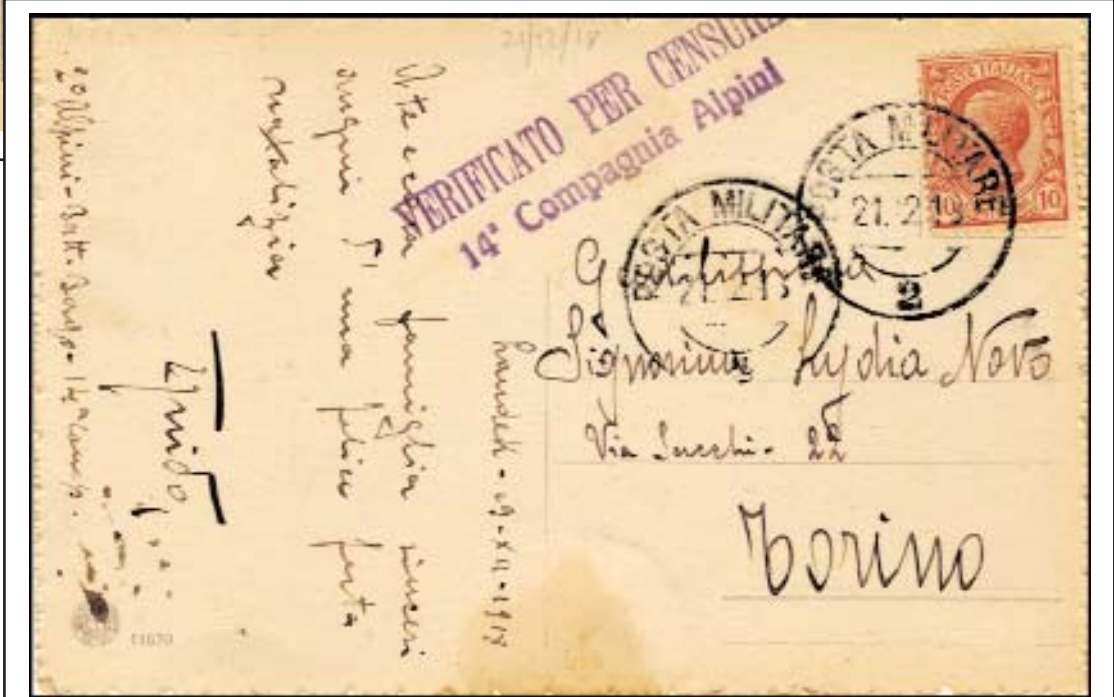 21/12/18
VERIFICATO PER CENSURA
14ª Compagnia Alpini
POSTE ITALIANE
10 10
POSTA MILITARE
21. 2.18
2
POSTA MILITARE
21. 2.1
Gentilissima
Signorina Lydia Novo
Via Sacchi - 22
Torino
Landek - 19-XII-1918
A te e famiglia sinceri
auguri di una felice festa
natalizia
Guido
Alpini - Batt. Borgo - 14ª Comp.